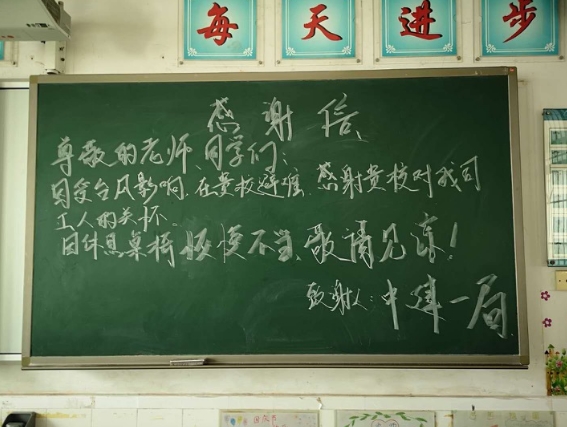 每天进步
感谢信
尊敬的老师 同学们：
因受台风影响，在贵校避难，感谢贵校对我司
工人的关怀。
因休息桌椅恢复不当，敬请见谅！
致谢人：中建一局